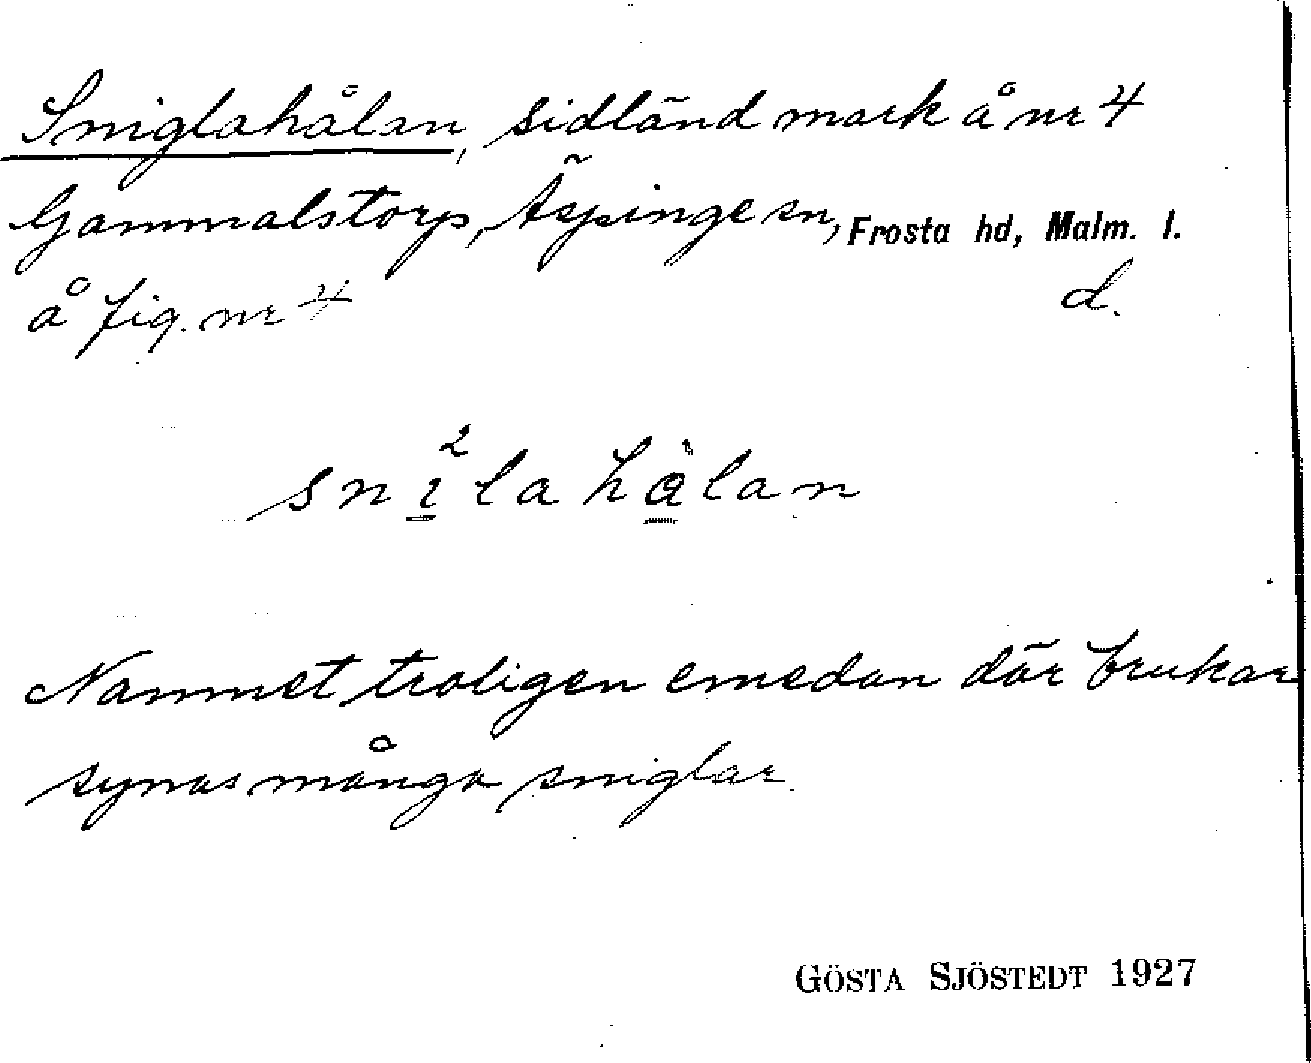 Sniglahålan, sidländ mark å nr 4
Gammalstorp, Äspinge sn, Frosta hd, Malm. l.
å fig. nr 4 d.
sni²la hålan
Namnet troligen emedan där brukar
synas många sniglar.
GÖSTA SJÖSTEDT 1927